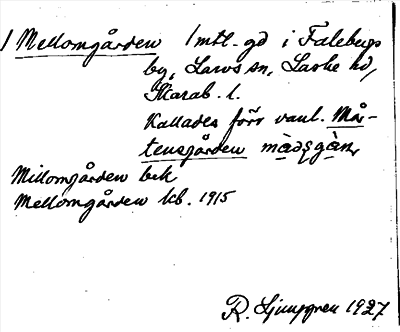 / Mellomgården 1 mtl. gd i Falebergs
by, Larvs sn, Laske hd,
Skarab. l.
Kallades förr vanl. Mår-
tensgården
Millomgården bek
Mellomgården kb. 1915
R. Ljunggren 1927